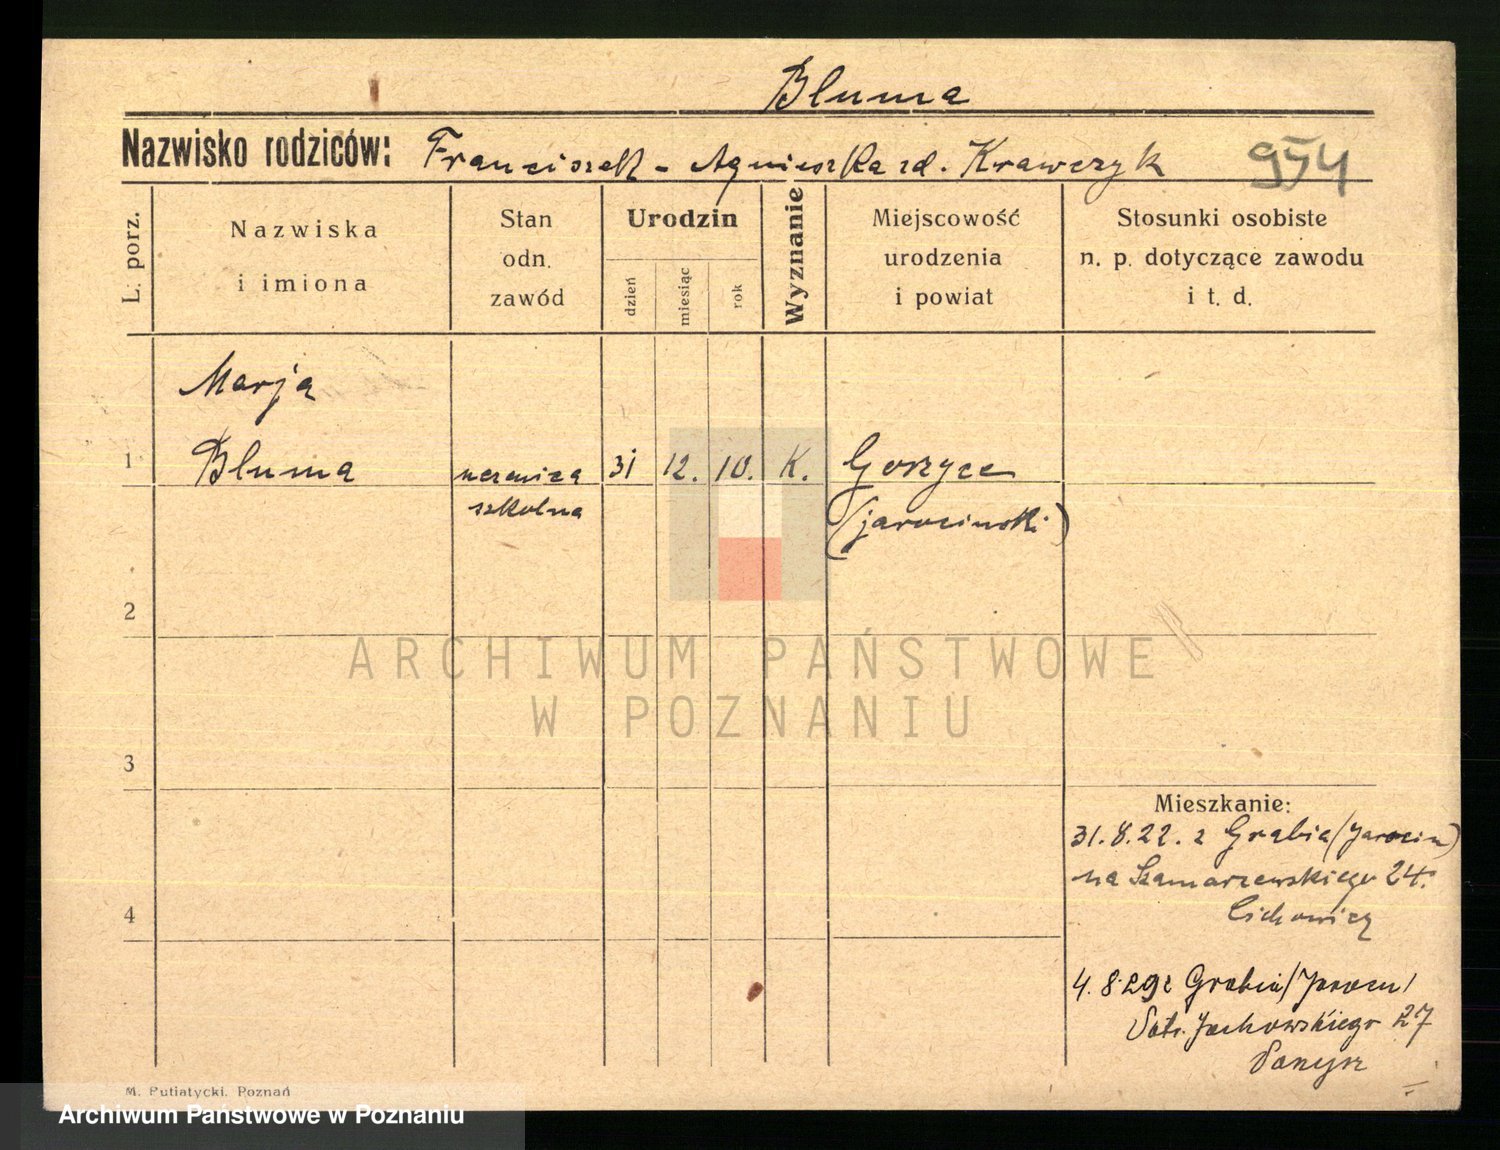 Bluma
Nazwisko rodziców: Franciszek - Agnieszka zd. Krawczyk 954
L. porz.
Nazwiska
i imiona
Stan
odn.
zawód
Urodzin
dzień
miesiąc
rok
Wyznanie
Miejscowość
urodzenia
i powiat
Stosunki osobiste
n. p. dotyczące zawodu
i t. d.
Marja
1 Bluma uczenica 31 12. 10. K. Gorzyce
szkolna (jarocinski)
2
ARCHIWUM PAŃSTWOWE
W POZNANIU
3
Mieszkanie:
31.8.22. z Grabia (Jarocin)
na Szamarzewskiego 24.
Cichowicz
4
4.8.29 z Grabia/Jarocin/
Jachowskiego 27
M. Putiatycki, Poznań
Archiwum Państwowe w Poznaniu